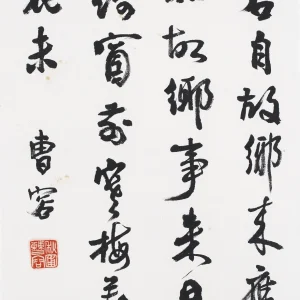 君自故鄉来應
知故鄉事来日
綺窗前寒梅著
花未
曹容